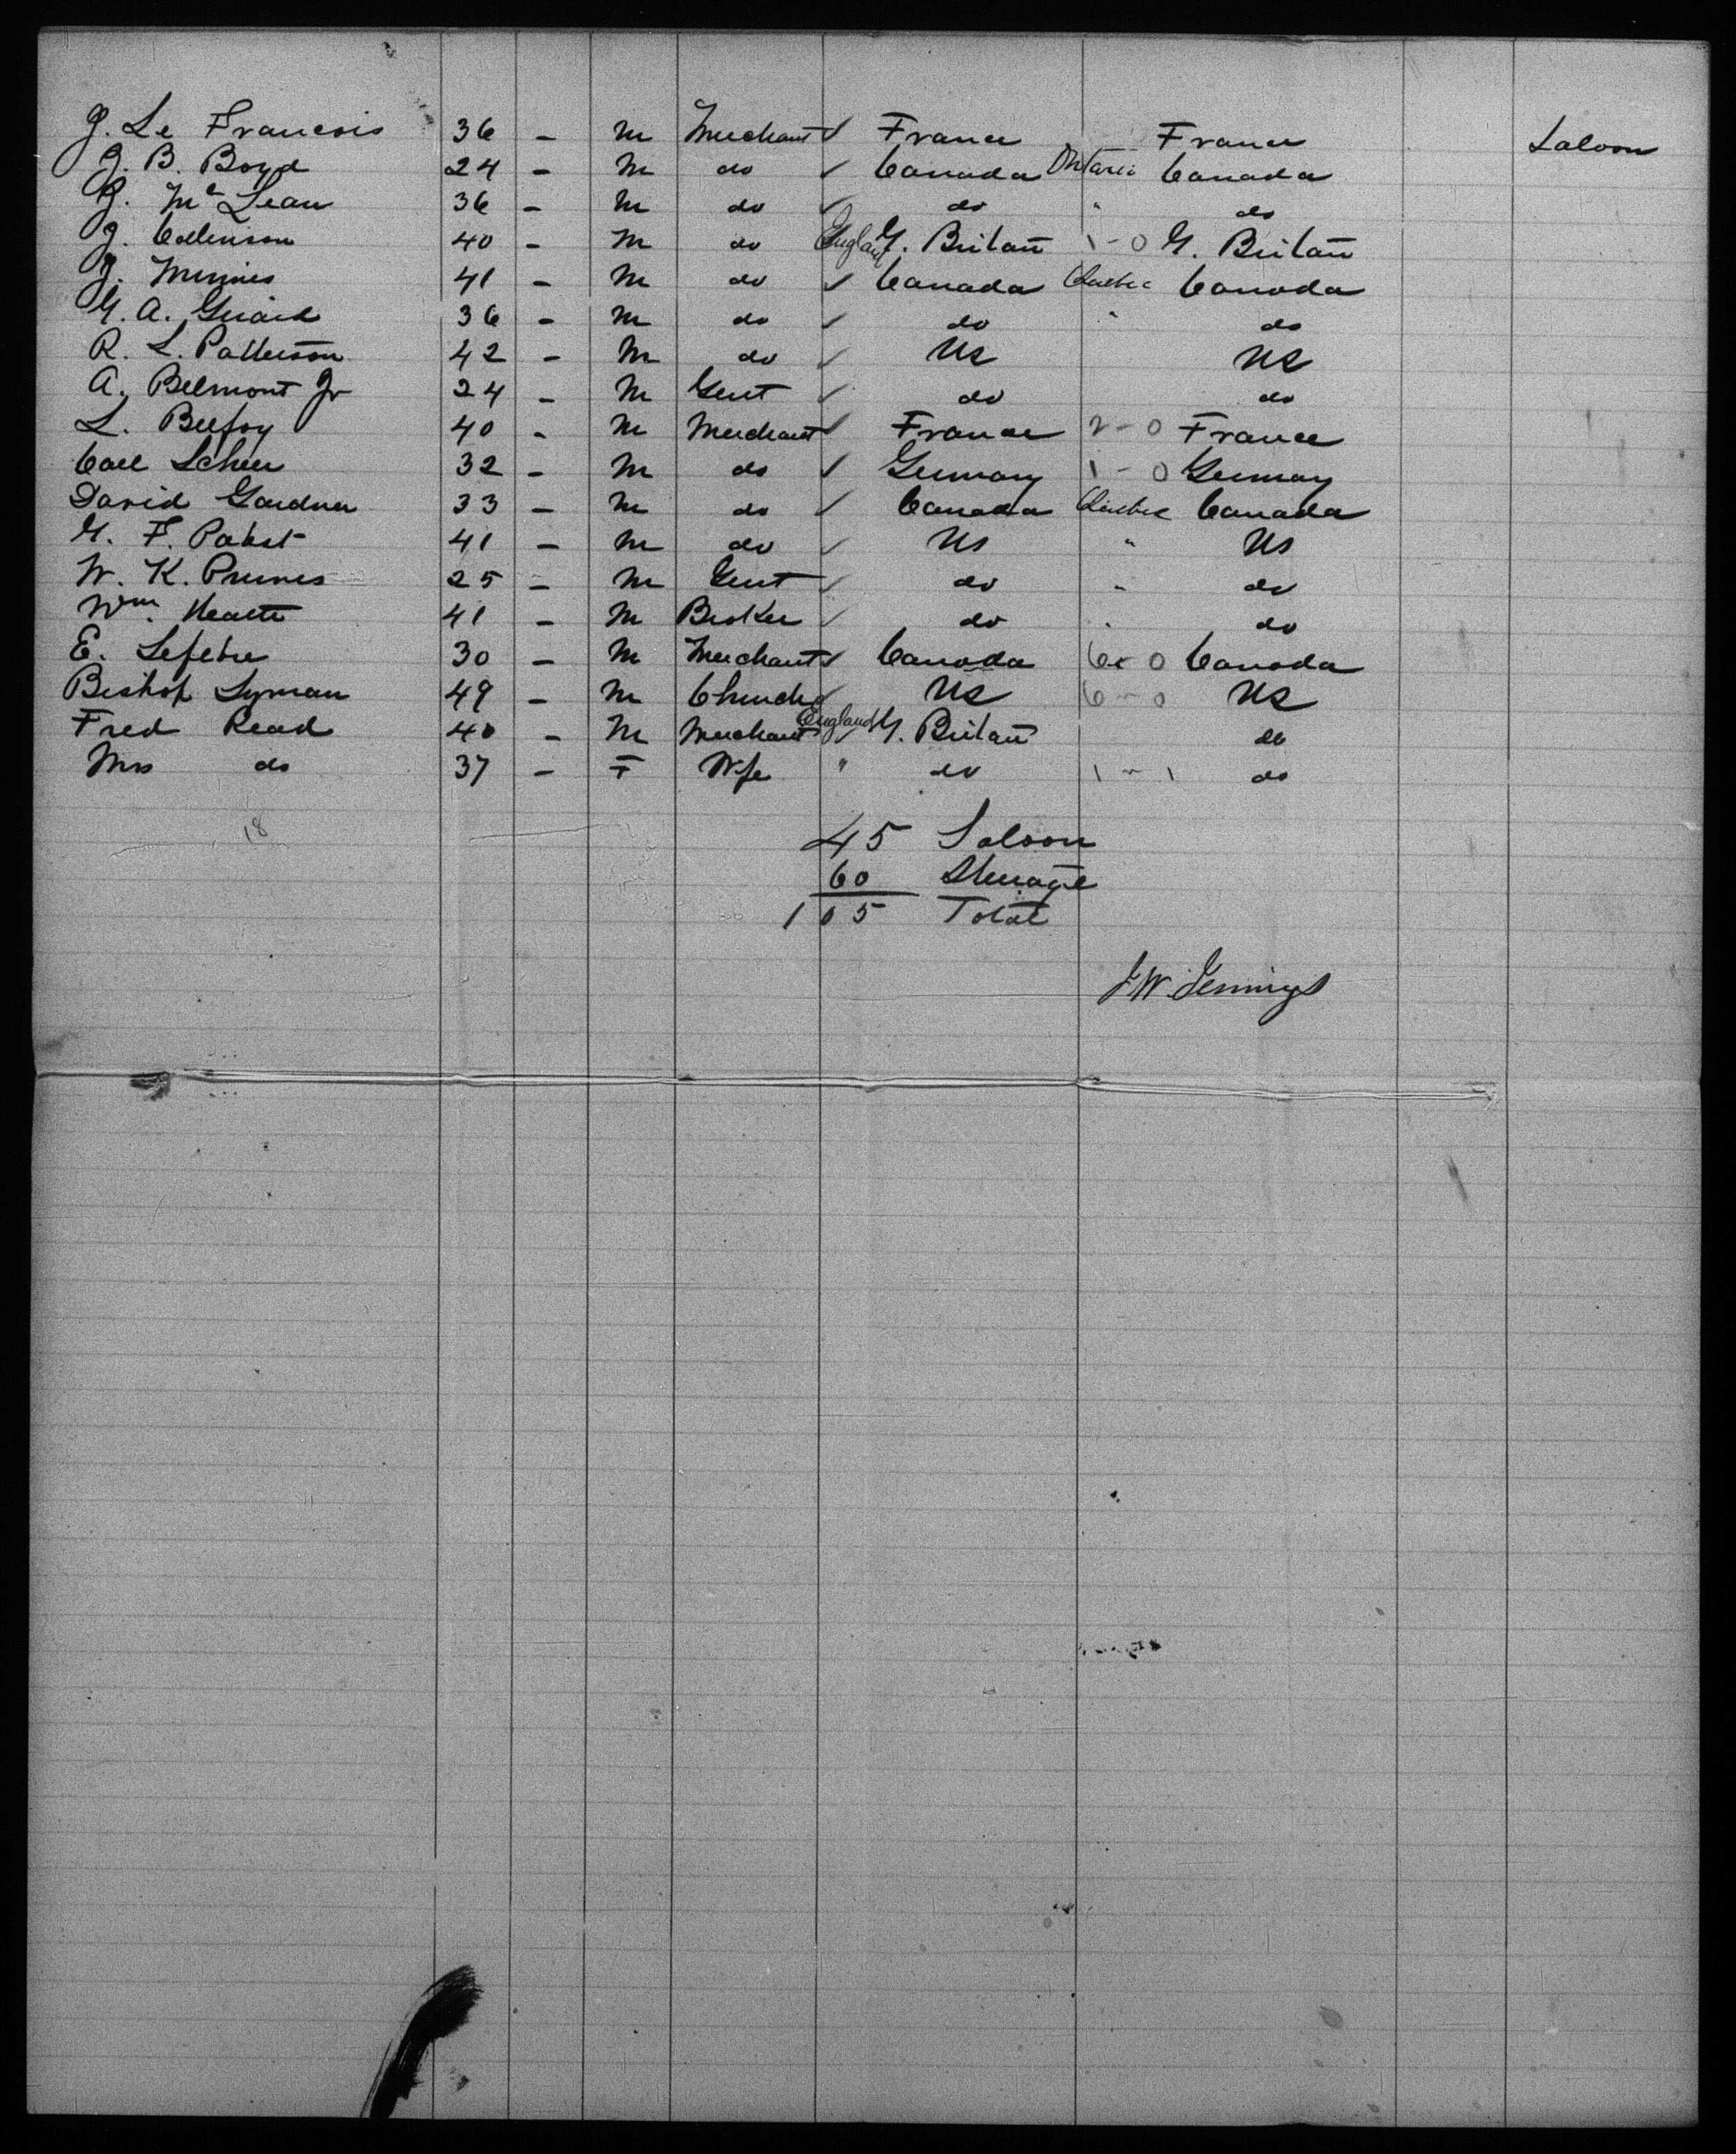 J. Le Francois 36 - M Merchant ✓ France France Saloon
J. B. Boyd 24 - M do ✓ Canada Ontario Canada
J. McLean 36 - M do ✓ do " do
J. Collinson 40 - M do England G. Britain 1-0 G. Britain
J. 41 - M do ✓ Canada Quebec Canada
G. A. Girard 36 - M do ✓ do " do
R. L. Patterson 42 - M do ✓ US US
A. Belmont Jr 24 - M Gent ✓ do do
L. 40 - M Merchant ✓ France 2-0 France
Carl Scheer 32 - M do ✓ Germany 1-0 Germany
David Gardner 33 - M do ✓ Canada Quebec Canada
G. F. Pabst 41 - M do ✓ US " US
W. K. 25 - M Gent ✓ do " do
Wm. 41 - M Broker ✓ do " do
E. Lefebre 30 - M Merchant ✓ Canada 0 Canada
Bishop Lyman 49 - M Church ✓ US 6-0 US
Fred Read 40 - M Merchant ✓ England G. Britain do
Mrs do 37 - F Wife " do 1-1 do
18
45 Saloon
60 Steerage
105 Total
J. W. Jennings